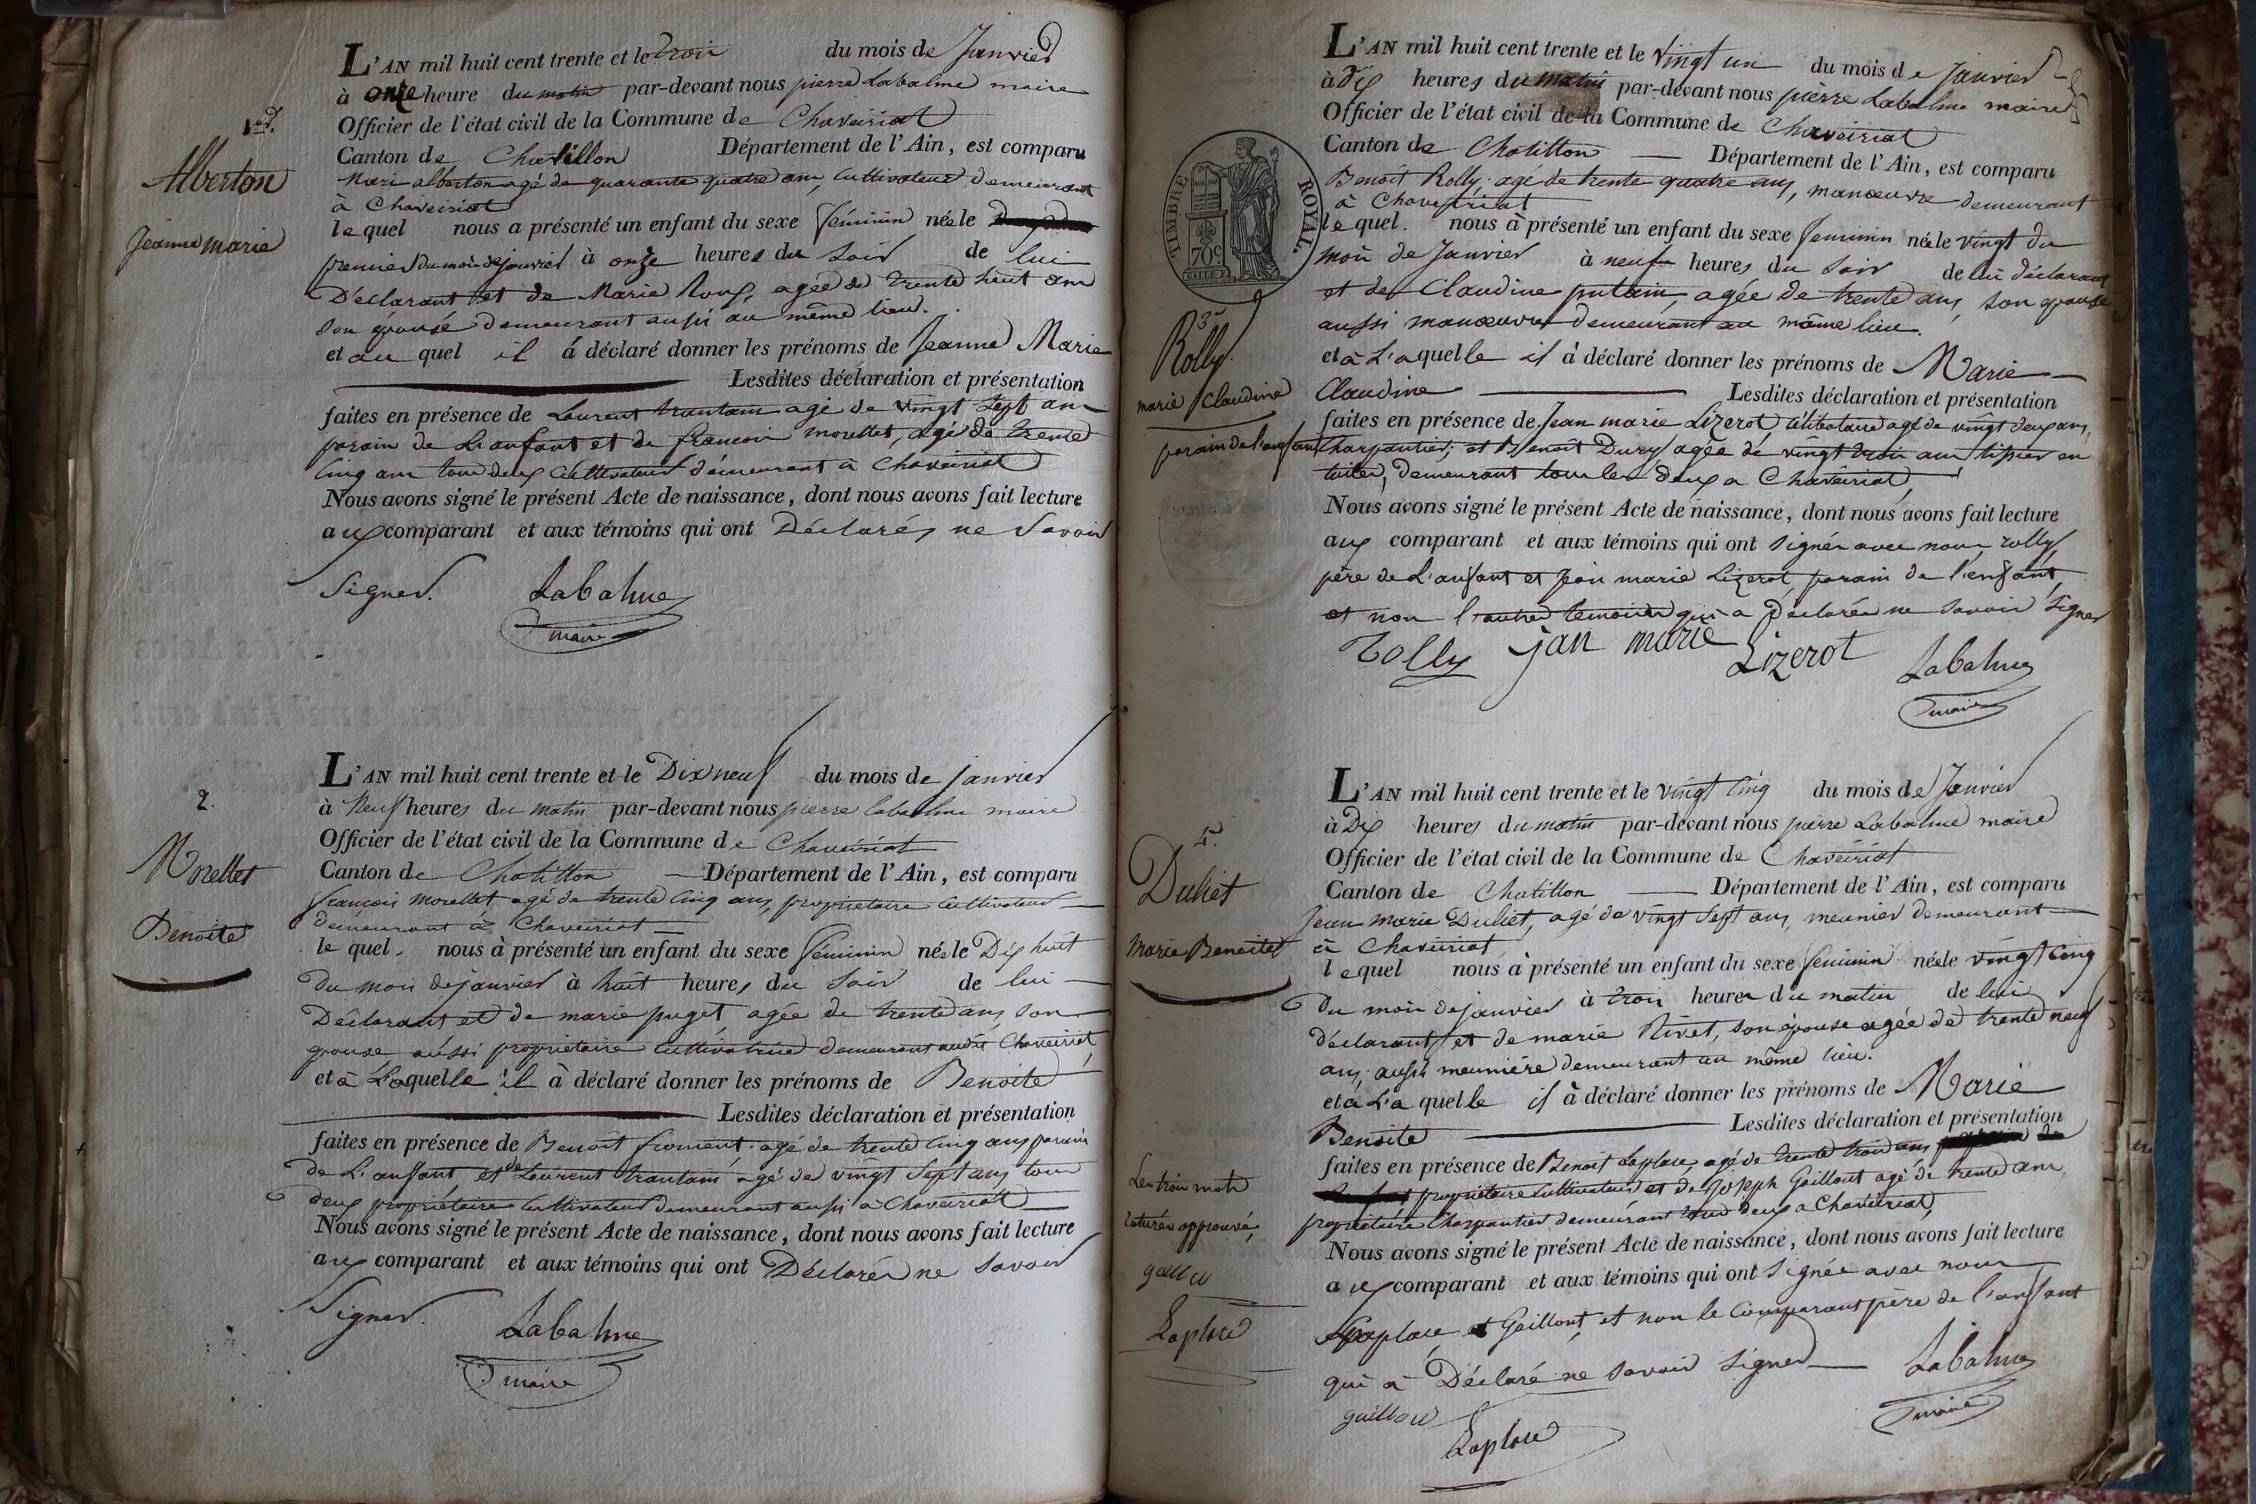 1er.
Alberton
Jeanne marie
L'AN mil huit cent trente et le trois du mois de Janvier
à onze heure du matin par-devant nous pierre Labalme maire
Officier de l'état civil de la Commune de Chaveiriat
Canton de Chatillon Département de l'Ain, est comparu
Mari alberton agé de quarante quatre ans, Cultivateur demeurant
à Chaveiriat
le quel nous a présenté un enfant du sexe féminin née le
premier du mois de janvier à onze heures du Soir de lui
Déclarant et de Marie Roux, agée de trente huit ans
Son épouse demeurant aussi au même lieu.
et au quel il à déclaré donner les prénoms de Jeanne Marie
Lesdites déclaration et présentation
faites en présence de Laurent trantain agé de vingt Sept ans
parain de L'anfant et de francois morellet, agé de trente
Cinq ans tous deux Cultivateurs demeurant à Chaveiriat
Nous avons signé le présent Acte de naissance, dont nous avons fait lecture
aux comparant et aux témoins qui ont Déclarés ne Savoir
Signer. Labalme
maire
2.
Morellet
Benoite
L'AN mil huit cent trente et le Dix neuf du mois de janvier
à Neuf heures du matin par-devant nous pierre labalme maire
Officier de l'état civil de la Commune de Chaveiriat
Canton de Chatillon Département de l'Ain, est comparu
francois morellet agé de trente Cinq ans, propriétaire Cultivateur
demeurant à Chaveiriat
le quel nous à présenté un enfant du sexe féminin née le Dix huit
Du mois de janvier à huit heures du Soir de lui
Déclarant et de marie puget agée de trente ans, Son
epouse aussi propriétaire Cultivatrice demeurant audit Chaveiriat
et à Laquelle il à déclaré donner les prénoms de Benoite
Lesdites déclaration et présentation
faites en présence de Benoit froment agé de trente Cinq ans parain
de L'anfant, et de Laurent trantain agé de vingt Sept ans tous
deux propriétaire Cultivateur demeurant aussi à Chaveiriat
Nous avons signé le présent Acte de naissance, dont nous avons fait lecture
aux comparant et aux témoins qui ont Déclarés ne Savoir
Signer. Labalme
maire
TIMBRE ROYAL.
70c.
3e
Rolly
marie Claudine
parain de l'anfant
L'AN mil huit cent trente et le vingt un du mois de Janvier
à dix heures du matin par-devant nous pierre Labalme maire
Officier de l'état civil de la Commune de Chaveiriat
Canton de Chatillon Département de l'Ain, est comparu
Benoit Rolly, age de trente quatre ans, manœuvre demeurant
à Chaveiriat
le quel. nous à présenté un enfant du sexe feminin née le vingt du
mois de Janvier à neuf heures du Soir de lui déclarant
et de Claudine putain, agée de trente ans, Son épouse
aussi manœuvre demeurant au même lieu.
et à L'aquelle il à déclaré donner les prénoms de Marie
Claudine Lesdites déclaration et présentation
faites en présence de Jean marie Lizerot, Célibataire agé de vingt deux ans,
Charpentier; et Benoit Dury agée de vingt trois ans tissier en
toiles, demeurant tous les deux a Chaveiriat,
Nous avons signé le présent Acte de naissance, dont nous avons fait lecture
aux comparant et aux témoins qui ont signés avec nous, rolly,
père de L'anfant et jean marie Lizerot, parain de l'enfant,
et non l'autre temoins qui a Déclarée ne Savoir Signer
rolly jan marie Lizerot Labalme
maire
4.
Duliet
Marie Benoite
L'AN mil huit cent trente et le vingt Cinq du mois de Janvier
à Dix heures du matin par-devant nous pierre Labalme maire
Officier de l'état civil de la Commune de Chaveiriat
Canton de Chatillon Département de l'Ain, est comparu
Jean Marie Duliet, agé de vingt Sept ans, meunier demeurant
à Chaveiriat
lequel nous à présenté un enfant du sexe feminin née le vingt Cinq
Du mois de janvier à trois heures du matin de lui
déclarant et de marie Nivet, son épouse agée de trente neuf
ans, aussi meunière demeurant au même lieu.
et à L'a quelle il à déclaré donner les prénoms de Marie
Benoite Lesdites déclaration et présentation
faites en présence de Benoit Laplace, agé de trente trois ans
propriétaire Cultivateur et de Joseph Gaillout agé de trente ans,
propriétaire Charpentier demeurant tous deux a Chaveiriat,
Nous avons signé le présent Acte de naissance, dont nous avons fait lecture
aux comparant et aux témoins qui ont Signée avec nous
Laplace, et Gaillout, et non le Comparant père de l'anfant
qui à Déclaré ne savoir signer Labalme
maire
Laplace
Les trois mots
raturés approuvés,
Laplace